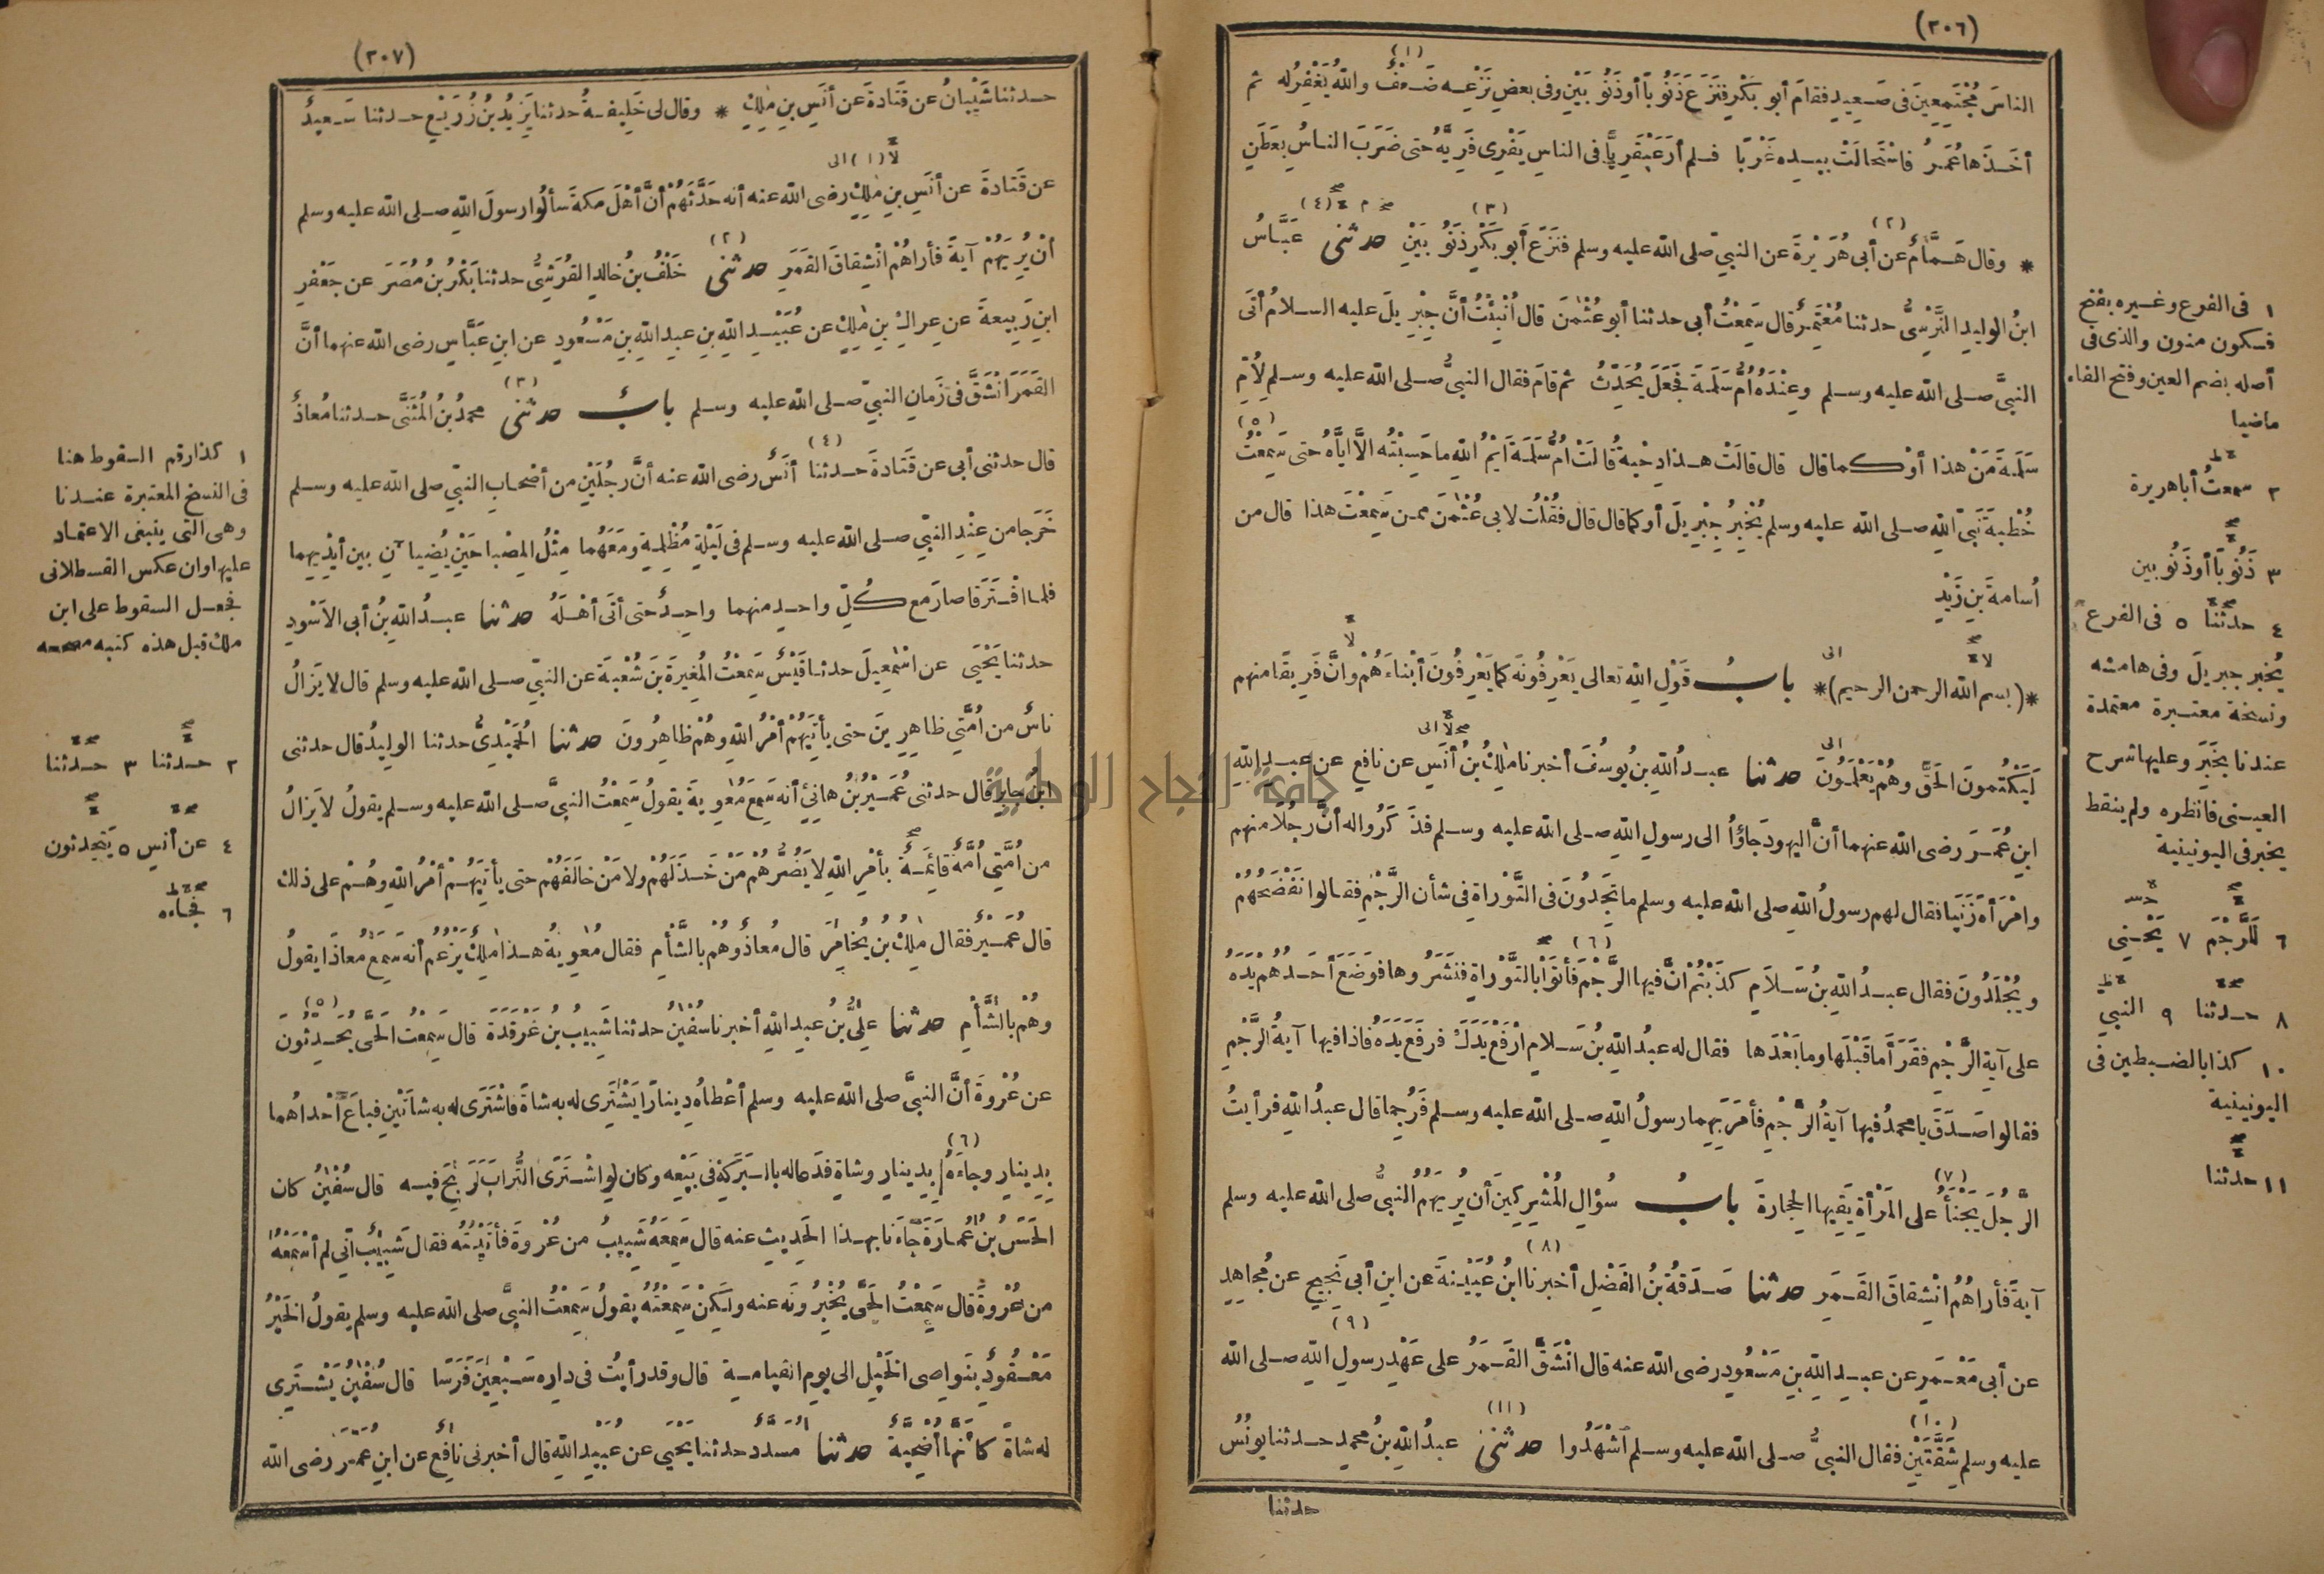 (٢٠٦)
الناسَ مُجْتَمِعِينَ فى صَعِيدٍ فقامَ أبو بَكْرٍ فَنَزَعَ ذَنُوبًا أو ذَنُوبَيْنِ وفى بعضِ نَزْعِهِ ضَعْفٌ (١) واللهُ يَغْفِرُ له ثم
أخَذَها عُمَرُ فاسْتَحالَتْ بيدِه غَرْبًا فلم أرَ عَبْقَرِيًّا فى الناسِ يَفْرِى فَرِيَّهُ حتى ضَرَبَ الناسُ بِعَطَنٍ
* وقال هَمَّامٌ عن (٢) أبى هُرَيْرةَ عن النبيِّ صلى الله عليه وسلم فنَزَعَ أبو بَكْرٍ (٣) ذَنُوبَيْنِ حدثنى (٤) عَبَّاسُ
ابنُ الوليدِ النَّرْسِىُّ حدثنا مُعْتَمِرٌ قال سَمِعْتُ أبى حدثنا أبو عُثْمٰنَ قال أُنْبِئْتُ أنَّ جِبْرِيلَ عليه السلامُ أتَى
النبيَّ صلى الله عليه وسلم وعِنْدَهُ أُمُّ سَلَمَةَ فَجَعَلَ يُحَدِّثُ ثم قامَ فقال النبيُّ صلى الله عليه وسلم لِأُمِّ
سَلَمَةَ مَنْ هذا أوْ كما قال قال قالَتْ هذا دِحْيةُ قالَتْ أُمُّ سَلَمَةَ ايْمُ اللهِ ما حَسِبْتُه الَّا ايَّاهُ حتى سَمِعْتُ (٥)
خُطْبةَ نَبيِّ اللهِ صلى الله عليه وسلم يُخْبِرُ جِبْرِيلَ أو كما قال قال فقُلْتُ لابى عُثْمٰنَ ممن سَمِعْتَ هذا قال من
أُسامةَ بنِ زَيْدٍ
*(بسم الله الرحمن الرحيم)* بابُ قَوْلِ اللهِ تعالى يَعْرِفُونَهُ كما يَعْرِفُونَ أبْناءَهُمْ وانَّ فَرِيقًا منهم
لَيَكْتُمونَ الحَقَّ وهُمْ يَعْلَمُونَ حدثنا عبدُ اللهِ بنُ يُوسُفَ أخبرنا مٰلِكُ بنُ أنَسٍ عن نافِعٍ عن عبدِ اللهِ
ابنِ عُمَرَ رضى الله عنهما أنَّ اليهودَ جاؤُا الى رسولِ اللهِ صلى الله عليه وسلم فذَكَرُوا له أنَّ رجُلًا منهم
وامْرَأةً زَنَيا فقال لهم رسولُ اللهِ صلى الله عليه وسلم ما تَجِدُونَ فى التَّوْراةِ فى شأنِ الرَّجْمِ فقالوا نَفْضَحُهُمْ
ويُجْلَدُونَ فقال عبدُ اللهِ بنُ سَلَامٍ كذَبْتُمْ انَّ فيها الرَّجْمَ (٦) فأتَوْا بالتَّوْراةِ فنَشَرُوها فوَضَعَ أحَدُهُمْ يَدَهُ
على آيةِ الرَّجْمِ فقَرَأَ ما قَبْلَها وما بَعْدَها فقال له عبدُ اللهِ بنُ سَلامٍ ارْفَعْ يَدَكَ فرَفَعَ يَدَهُ فاذا فيها آيةُ الرَّجْمِ
فقالوا صَدَقَ يا محمدُ فيها آيةُ الرَّجْمِ فأمَرَ بِهِما رسولُ اللهِ صلى الله عليه وسلم فرُجِما قال عبدُ اللهِ فرأيتُ
الرَّجُلَ يَجْنَأُ (٧) على المَرْأةِ يَقِيها الحِجارةَ بابُ سُؤالِ المُشْرِكِينَ أن يُرِيَهُمُ النبيُّ صلى الله عليه وسلم
آيةً فأراهُمُ انْشِقاقَ القَمَرِ حدثنا صَدَقةُ بنُ الفَضْلِ أخبرنا (٨) ابنُ عُيَيْنةَ عن ابنِ أبى نَجِيحٍ عن مُجاهِدٍ
عن أبى مَعْمَرٍ عن عبدِ اللهِ بنِ مَسْعُودٍ رضى الله عنه قال انْشَقَّ القَمَرُ على عَهْدِ رسولِ (٩) اللهِ صلى الله
عليه وسلم شِقَّتَيْنِ (١٠) فقال النبيُّ صلى الله عليه وسلم اشْهَدُوا حدثنى (١١) عبدُ اللهِ بنُ محمدٍ حدثنا يونُسُ
حدثنا
١ فى الفرع وغيره بفتح
فسكون منون والذى فى
أصله بضم العين وفتح الفاء
ماضيا
٢ سمعتُ أبا هريرة
٣ ذَنُوبًا أو ذَنُوبين
٤ حدثنا ٥ فى الفرع
يُخبِر جبريلَ وفى هامشه
ونسخة معتبرة معتمدة
عندنا بِخَبَرِ وعليها شرح
العينى فانظره ولم ينقط
يخبر فى اليونينية
٦ لَلرَّجْمَ ٧ يَحْنِى
٨ حدثنا ٩ النبيِ
١٠ كذا بالضبطين فى
اليونينية
١١ حدثنا
(٢٠٧)
حدثنا شَيْبانُ عن قَتادةَ عن أنَسِ بنِ مٰلِكٍ * وقال لى خَلِيفةُ حدثنا يَزِيدُ بنُ زُرَيْعٍ حدثنا سَعِيدٌ
عن قَتادةَ عن أنَسِ بنِ مٰلِكٍ (١) رضى الله عنه أنه حَدَّثَهُمْ أنَّ أهْلَ مكةَ سألُوا رسولَ اللهِ صلى الله عليه وسلم
أنْ يُرِيَهُمْ آيةً فأراهُمُ انْشِقاقَ القَمَرِ حدثنى (٢) خَلَفُ بنُ خالِدٍ القُرَشِىُّ حدثنا بَكْرُ بنُ مُضَرَ عن جَعْفَرِ
ابنِ رَبِيعةَ عن عِراكِ بنِ مٰلِكٍ عن عُبَيْدِ اللهِ بنِ عبدِ اللهِ بنِ مَسْعُودٍ عن ابنِ عَبَّاسٍ رضى الله عنهما أنَّ
القَمَرَ انْشَقَّ فى زَمانِ النبيِّ صلى الله عليه وسلم بابٌ حدثنى (٣) محمدُ بنُ المُثَنَّى حدثنا مُعاذٌ
قال حدثنى أبى عن قَتادةَ حدثنا (٤) أنَسٌ رضى الله عنه أنَّ رجُلَيْنِ من أصْحابِ النبيِّ صلى الله عليه وسلم
خَرَجا من عِنْدِ النبيِّ صلى الله عليه وسلم فى لَيْلةٍ مُظْلِمةٍ ومعَهُما مِثْلُ المِصْباحَيْنِ يُضِيآنِ بين أيْدِيهِما
فلما افْتَرَقا صارَ مع كُلِّ واحِدٍ منهما واحِدٌ حتى أتَى أهْلَهُ حدثنا عبدُ اللهِ بنُ أبى الاَسْوَدِ
حدثنا يَحْيَى عن اسْمٰعِيلَ حدثنا قَيْسٌ سَمِعْتُ المُغِيرَةَ بنَ شُعْبَةَ عن النبيِّ صلى الله عليه وسلم قال لا يَزالُ
ناسٌ من أُمَّتِى ظاهِرِينَ حتى يأتِيَهُمْ أمْرُ اللهِ وهُمْ ظاهِرُونَ حدثنا الحُمَيْدِىُّ حدثنا الوليدُ قال حدثنى
ابنُ جابِرٍ قال حدثنى عُمَيْرُ بنُ هانِئٍ أنه سَمِعَ مُعٰوِيةَ يقولُ سَمِعْتُ النبيَّ صلى الله عليه وسلم يقولُ لا يَزالُ
من أُمَّتِى أُمَّةٌ قائِمَةٌ بأمْرِ اللهِ لا يَضُرُّهُمْ مَنْ خَذَلَهُمْ ولا مَنْ خالَفَهُمْ حتى يأتِيَهُمْ أمْرُ اللهِ وهُمْ على ذلك
قال عُمَيْرٌ فقال مٰلِكُ بنُ يُخامِرَ قال مُعاذٌ وهُمْ بالشَّأْمِ فقال مُعٰوِيةُ هذا مٰلِكٌ يَزْعُمُ أنه سَمِعَ مُعاذًا يقولُ
وهُمْ بالشَّأْمِ حدثنا علىُّ بنُ عبدِ اللهِ أخبرنا سُفْيٰنُ حدثنا شَبِيبُ بنُ غَرْقَدَةَ قال سَمِعْتُ الحَىَّ يُحَدِّثُونَ (٥)
عن عُرْوةَ أنَّ النبيَّ صلى الله عليه وسلم أعْطاهُ دِينارًا يَشْتَرِى له به شاةً فاشْتَرَى له به شاتَيْنِ فباعَ احْداهُما
بِدِينارٍ وجاءَهُ (٦) بِدِينارٍ وشاةٍ فدَعا له بالبَرَكَةِ فى بَيْعِه وكان لوِ اشْتَرَى التُّرابَ لَرَبِحَ فيه قال سُفْيٰنُ كان
الحَسَنُ بنُ عُمارَةَ جاءَنا بهذا الحَدِيثِ عنه قال سَمِعَهُ شَبِيبٌ من عُرْوةَ فأتَيْتُه فقال شَبِيبٌ انِّى لم أسْمَعْهُ
من عُرْوةَ قال سَمِعْتُ الحَىَّ يُخْبِرُونَه عنه ولَكِنْ سَمِعْتُه يقولُ سَمِعْتُ النبيَّ صلى الله عليه وسلم يقولُ الخَيْرُ
مَعْقُودٌ بنَواصِى الخَيْلِ الى يومِ القيامةِ قال وقد رأيتُ فى دارِه سَبْعِينَ فَرَسًا قال سُفْيٰنُ يَشْتَرِى
له شاةً كأنها أُضْحِيَّةٌ حدثنا مُسَدَّدٌ حدثنا يَحْيَى عن عُبَيْدِ اللهِ قال أخبرنى نافِعٌ عن ابنِ عُمَرَ رضى الله
١ كذا رقم السقوط هنا
فى النسخ المعتبرة عندنا
وهى التى ينبغى الاعتماد
عليها وان عكس القسطلانى
فجعل السقوط على ابن
ملك قبل هذه كتبه مصححه
٢ حدثنا ٣ حدثنا
٤ عن أنسٍ ٥ يَتَحدثون
٦ فجاءه
جامعة النجاح الوطنية